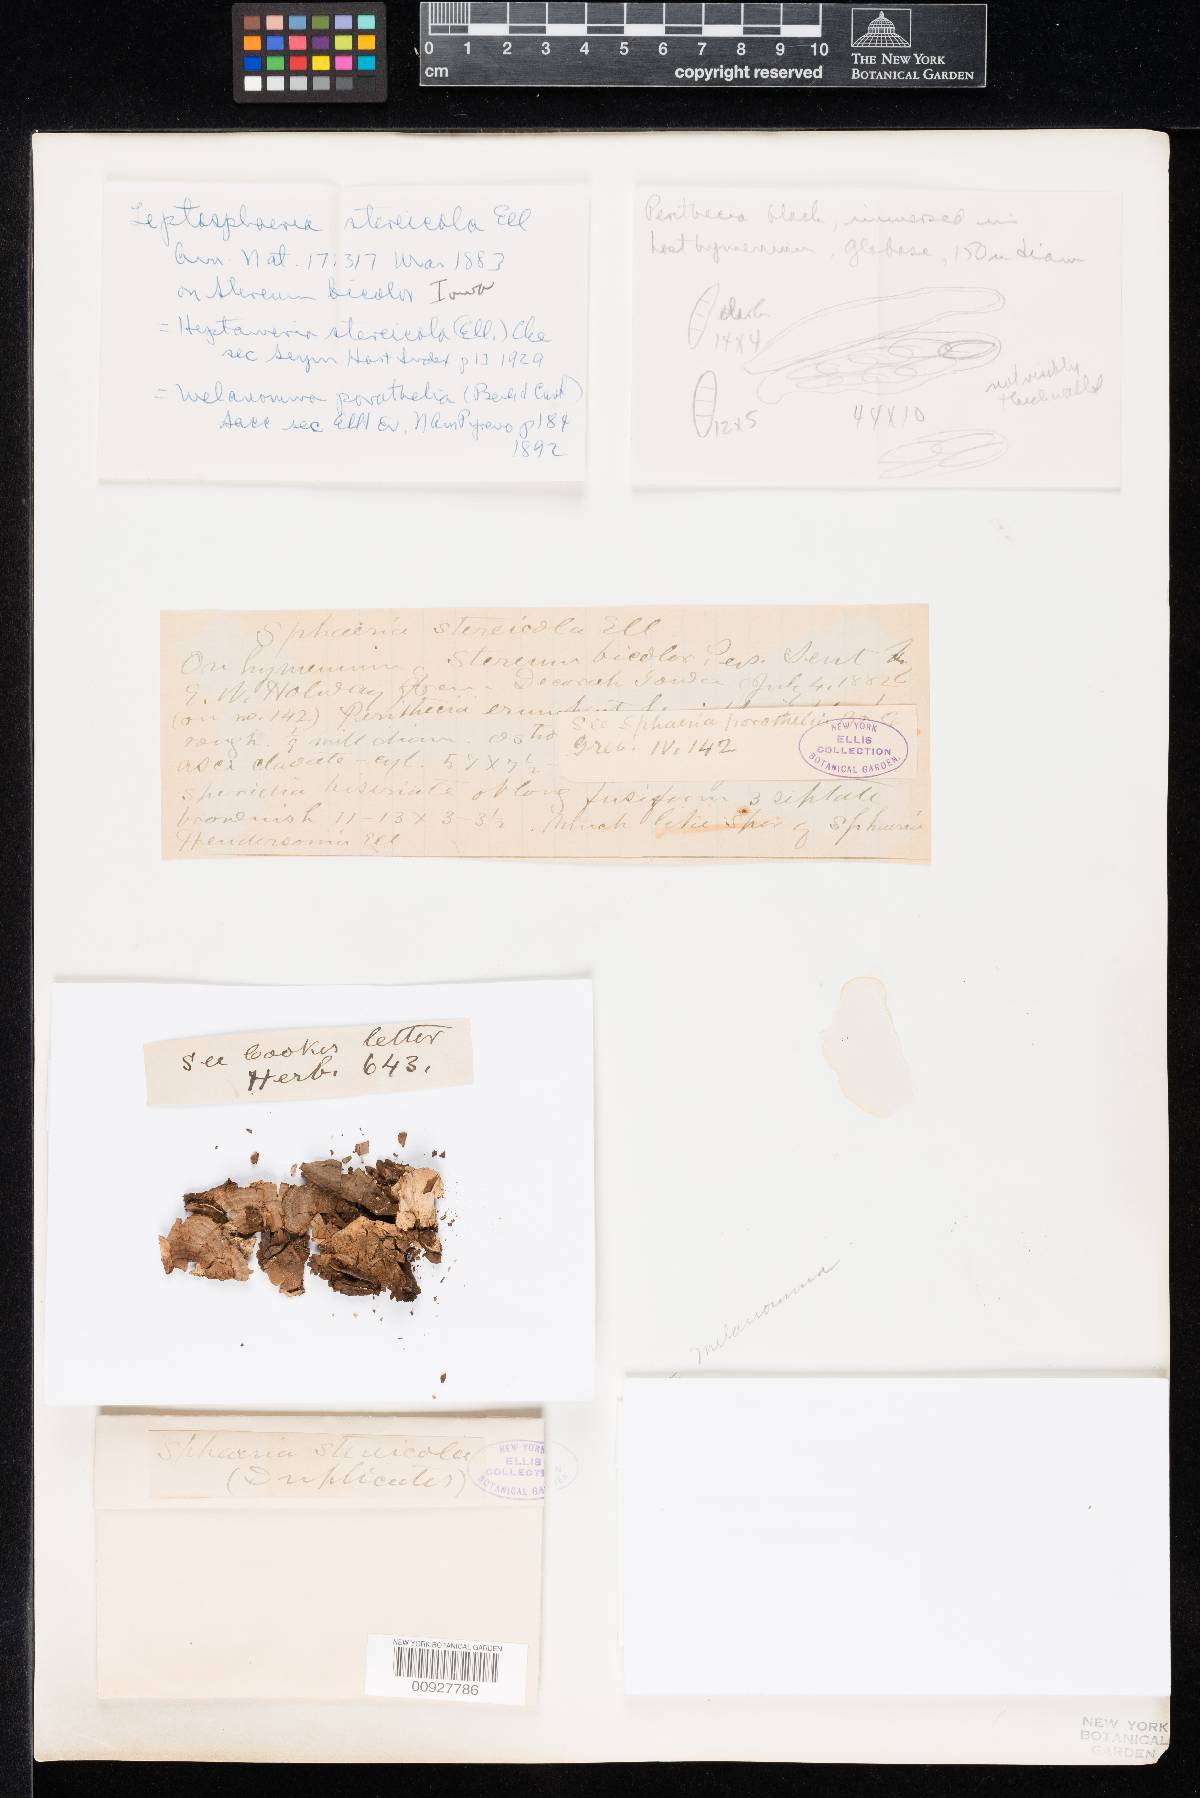 0 1 2 3 4 5 6 7 8 9 10
cm
copyright reserved
THE NEW YORK
BOTANICAL GARDEN
Leptosphaeria stereicola Ell
Am. Nat. 17:317 Mar 1883
on Stereum bicolor Iowa
= Heptameria stereicola (Ell.) Cke
sec Seym Host Index p 13 1929
= Melanomma porothelia (Berk & Curt)
Sacc sec Ell & Ev, N Am Pyreno p 184
1892
Perithecia black, immersed in
host hymenium, globose, 150u diam
dark
14x4
12x5
44x10
not visibly
thick walled
Sphaeria stereicola Ell
On hymenium of Stereum bicolor Pers. Sent by
E. W. Holway from Decorah Iowa July 4, 1882
(on no. 142) Perithecia erumpent
rough. mill diam.
asci clavate-cyl.
See Sphaeria porothelia B. & C.
Grev. IV. 142
NEW YORK
ELLIS
COLLECTION
BOTANICAL GARDEN.
Sporidia biseriate oblong fusiform 3 septate
brownish 11-13 x 3-3½. Much like spor of Sphaeria
Hendersonia Ell
See Cookes letter
Herb. 643.
Melanomma
Sphaeria stereicola
(Duplicates)
NEW YORK
ELLIS
COLLECTION
BOTANICAL GARDEN
NEW YORK BOTANICAL GARDEN
00927786
NEW YORK
BOTANICAL
GARDEN